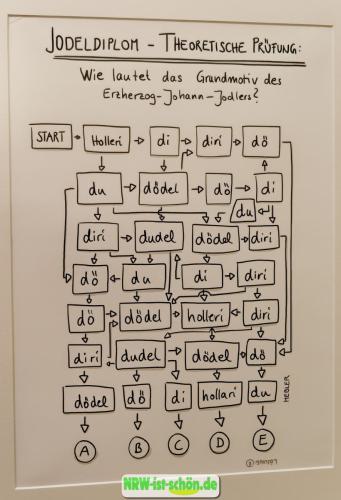 JODELDIPLOM – THEORETISCHE PRÜFUNG:
WIE LAUTET DAS GRUNDMOTIV DES
ERZHERZOG-JOHANN-JODLERS?
START Holleri di diri dö
du dödel dö di
du
diri dudel dödel diri
dö du di diri
dö dödel holleri diri
diri dudel dödel dö
dödel dö di hollari du
HEGLER
A B C D E
NRW-ist-schön.de